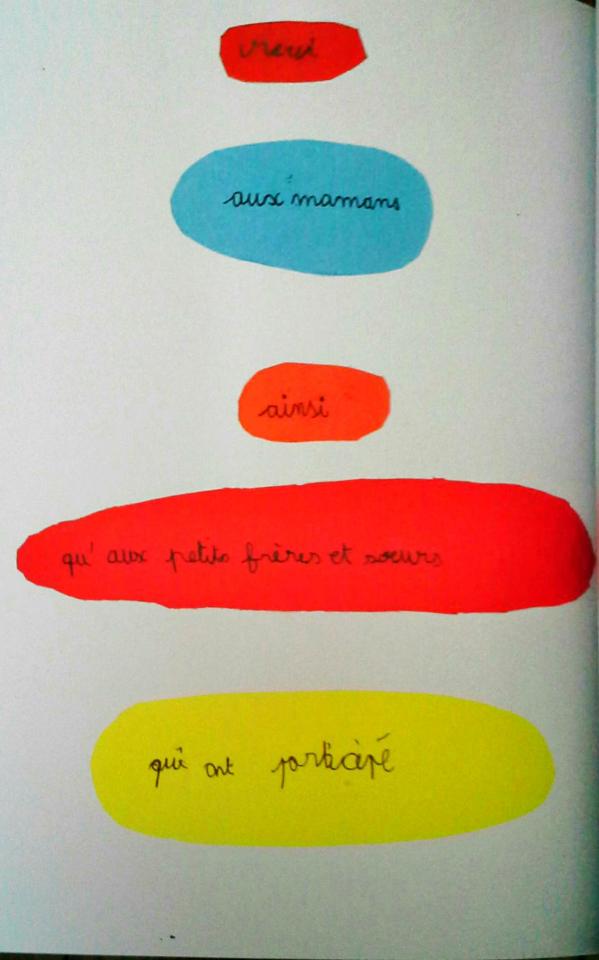 merci
aux mamans
ainsi
qu'aux petits frères et sœurs
qui ont participé